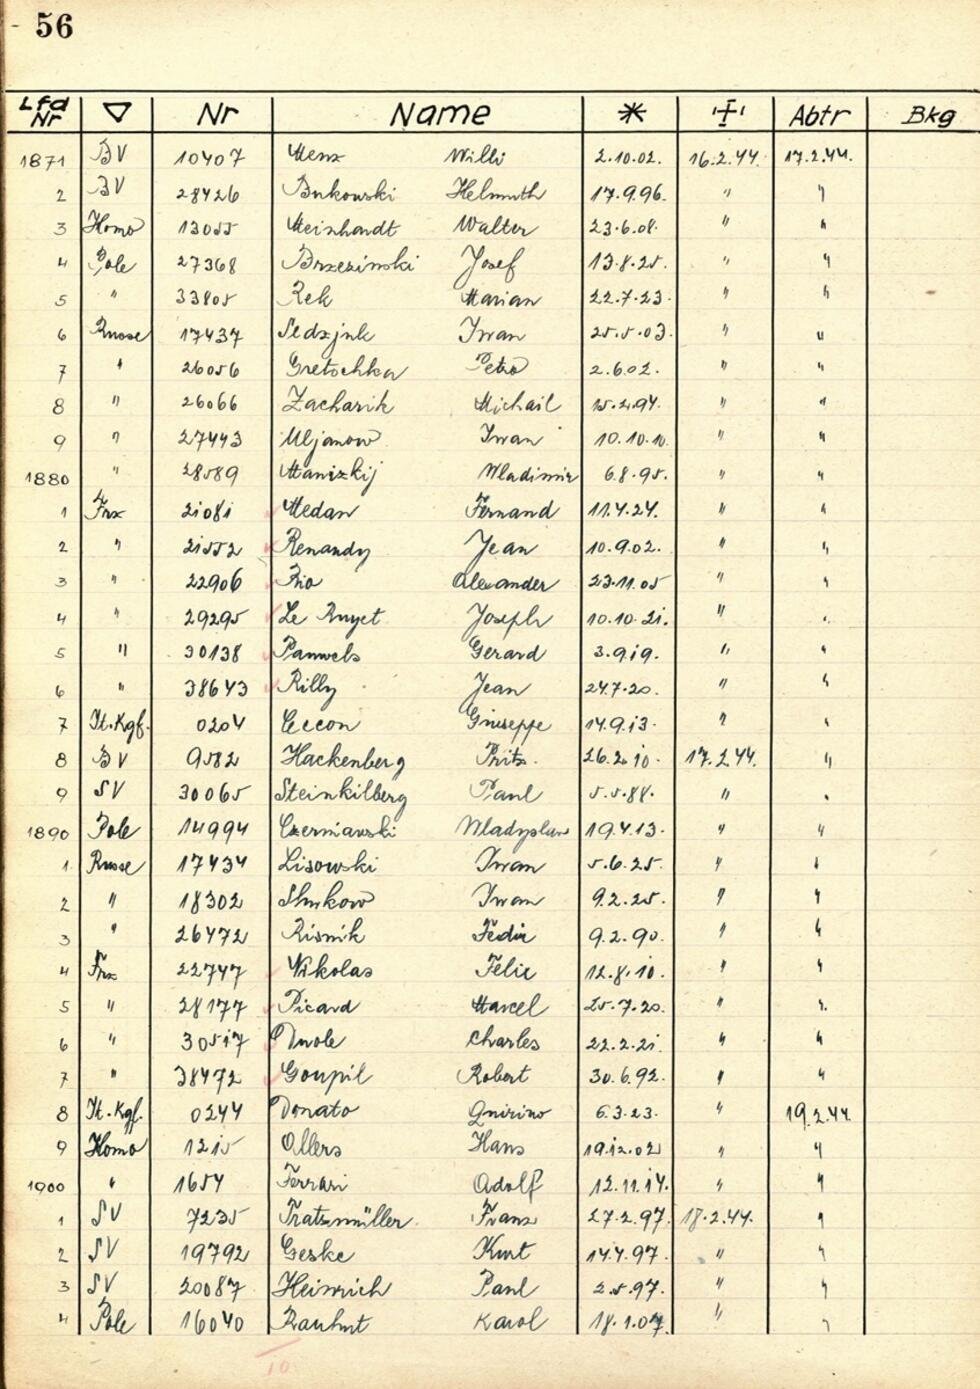 56
Lfd Nr ▽ Nr Name * ✝ Abtr Bkg
1871 BV 10407 Menz Willi 2.10.02. 16.2.44. 17.2.44.
2 BV 28426 Bukowski Helmuth 17.9.96. " "
3 Homo 13055 Meinhardt Walter 23.6.08. " "
4 Pole 27368 Brzezinski Josef 13.8.25. " "
5 " 33805 Rek Marian 22.7.23. " "
6 Russe 17437 Sedzjuk Iwan 25.5.03. " "
7 " 26056 Gretschka Petro 2.6.02. " "
8 " 26066 Zacharik Michail 15.2.94. " "
9 " 27443 Uljanow Iwan 10.10.10. " "
1880 " 28589 Manizkij Wladimir 6.8.95. " "
1 Frz 21081 Medan Fernand 11.4.24. " "
2 " 21552 Renandy Jean 10.9.02. " "
3 " 22906 Rio Alexander 23.11.05 " "
4 " 29295 Le Ruyet Joseph 10.10.21. " "
5 " 30138 Pauwels Gerard 3.9.19. " "
6 " 38643 Rilly Jean 24.7.20. " "
7 It.Kgf. 0204 Ceccon Giuseppe 14.9.13. " "
8 BV 9582 Hackenberg Fritz. 26.2.10. 17.2.44. "
9 SV 30065 Steinkilberg Paul 5.5.88. " "
1890 Pole 14994 Czerniawski Wladyslaw 19.4.13. " "
1 Russe 17434 Lisowski Iwan 5.6.25. " "
2 " 18302 Shukow Iwan 9.2.25. " "
3 " 26472 Risnik Fedir 9.2.90. " "
4 Frz 22747 Nikolas Felix 12.8.10. " "
5 " 28177 Picard Marcel 25.7.20. " "
6 " 30517 Duole Charles 22.2.21. " "
7 " 38472 Goupil Robert 30.6.92. " "
8 It.Kgf. 0244 Donato Quirino 6.3.23. " 19.2.44.
9 Homo 1215 Ollers Hans 19.12.02 " "
1900 " 1654 Ferrari Adolf 12.11.14. " "
1 SV 7235 Tratzmüller Franz 27.2.97. 18.2.44. "
2 SV 19792 Geske Kurt 14.4.97. " "
3 SV 20087 Heinrich Paul 2.5.97. " "
4 Pole 16040 Rauhut Karol 18.1.07. " "
10